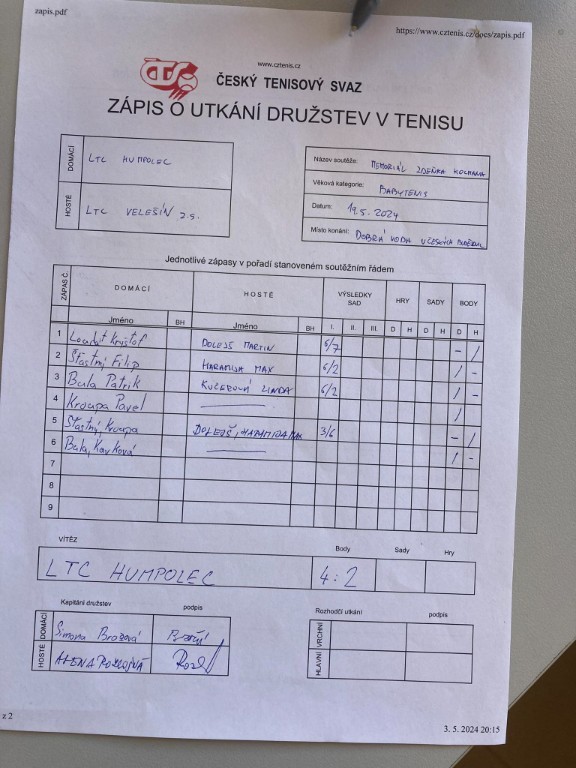 zapis.pdf
https://www.cztenis.cz/docs/zapis.pdf
www.cztenis.cz
ČTS
ČESKÝ TENISOVÝ SVAZ
ZÁPIS O UTKÁNÍ DRUŽSTEV V TENISU
DOMÁCÍ LTC HUMPOLEC
HOSTÉ LTC VELEŠÍN z.s.
Název soutěže: MEMORIÁL ZDEŇKA
Věková kategorie: BABYTENIS
Datum: 19.5. 2024
Místo konání: DOBRÁ VODA U ČESKÝCH BUDĚJOVIC
Jednotlivé zápasy v pořadí stanoveném soutěžním řádem
ZÁPAS Č. DOMÁCÍ HOSTÉ VÝSLEDKY SAD HRY SADY BODY
Jméno BH Jméno BH I. II. III. D H D H D H
1 Kristof DOLEJŠ MARTIN 5/7 - /
2 Šťastný Filip HARAMIJA MAX 6/2 / -
3 Bula Patrik KUČEROVÁ LINDA 6/2 / -
4 Kroupa Pavel /
5 Šťastný, Kroupa DOLEJŠ, HARAMIJA MAX 3/6 - /
6 Bula, Kavková / -
7
8
9
VÍTĚZ Body Sady Hry
LTC HUMPOLEC 4:2
Kapitáni družstev podpis Rozhodčí utkání podpis
DOMÁCÍ Simona Brožová
HOSTÉ ALENA
VRCHNÍ
HLAVNÍ
z 2
3. 5. 2024 20:15